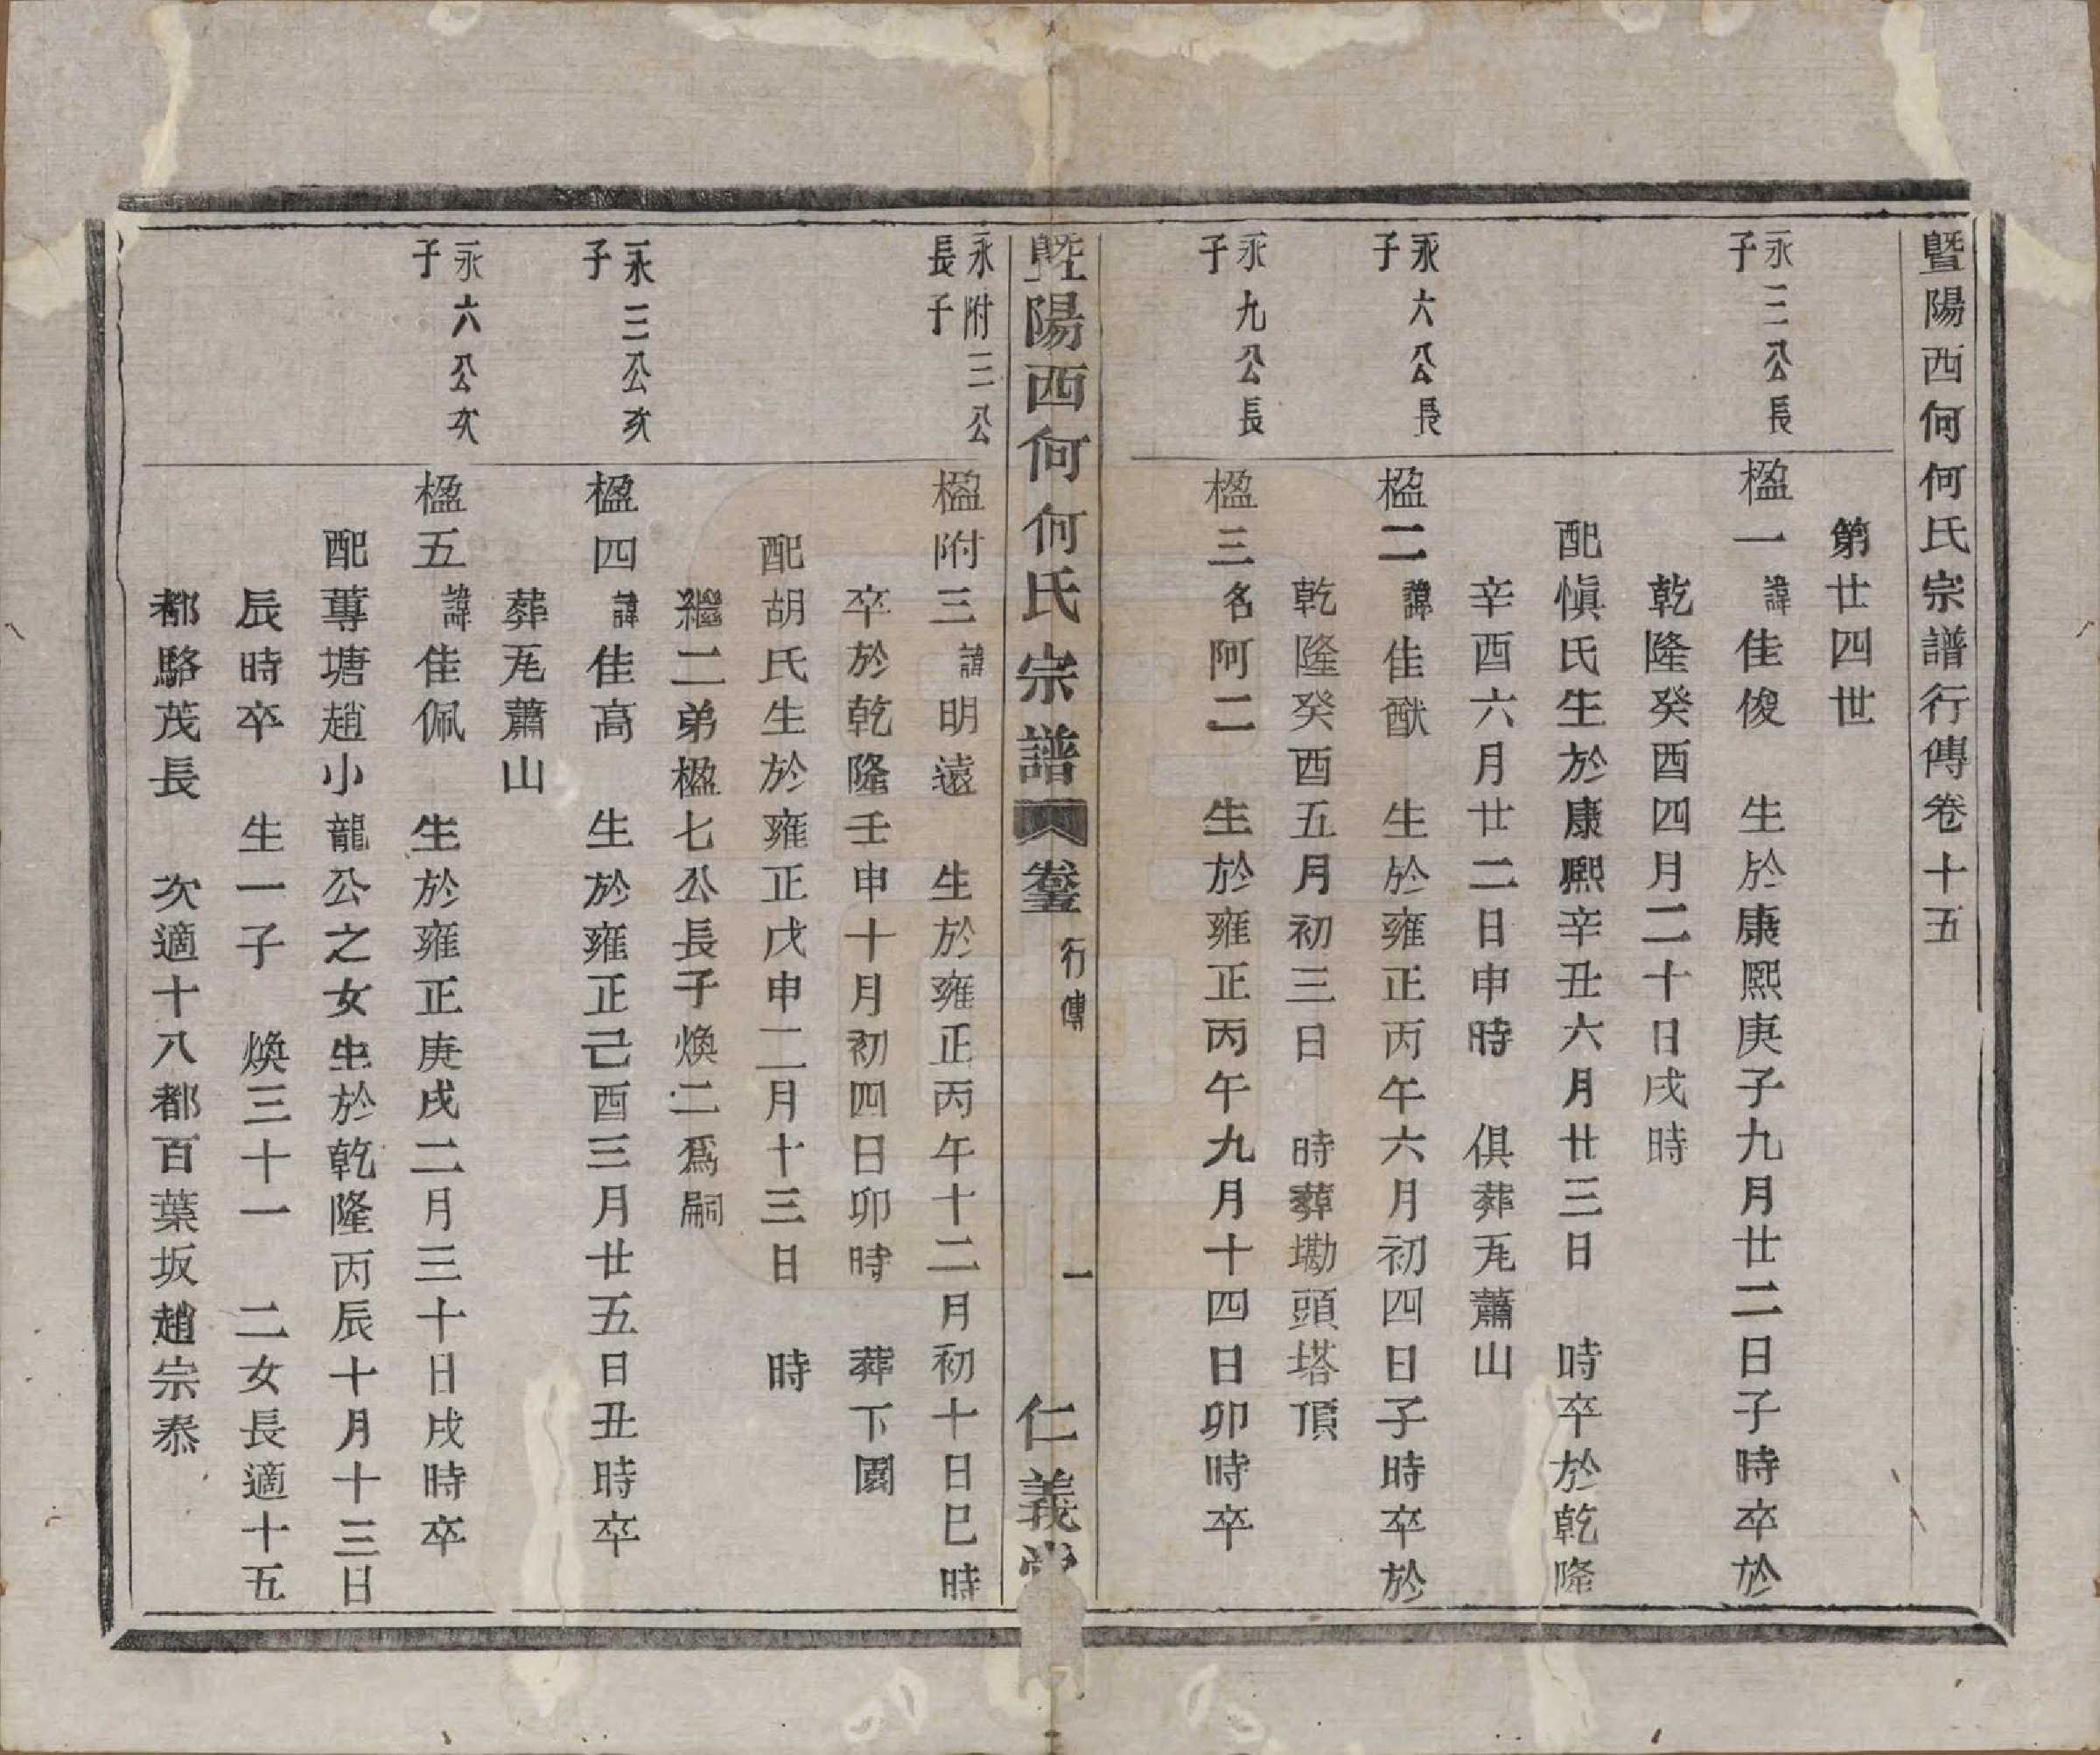 暨陽西何何氏宗譜行傳卷十五
第廿四世
永三公長
子
楹一諱佳俊　生於康熙庚子九月廿二日子時卒於
乾隆癸酉四月二十日戌時
配愼氏生於康熙辛丑六月廿三日　時卒於乾隆
辛酉六月廿二日申時　俱葬兎蕭山
永六公長
子
楹二諱佳猷　生於雍正丙午六月初四日子時卒於
乾隆癸酉五月初三日　時葬墈頭塔頂
永九公長
子
楹三名阿二　生於雍正丙午九月十四日卯時卒
暨陽西何何氏宗譜
卷十五　行傳
一
仁義堂
永附三公
長子
楹附三諱明遠　生於雍正丙午十二月初十日巳時
卒於乾隆壬申十月初四日卯時　葬下園
配胡氏生於雍正戊申二月十三日　時
繼二弟楹七公長子煥二爲嗣
永三公次
子
楹四諱佳高　生於雍正己酉三月廿五日丑時卒
葬兎蕭山
永六公次
子
楹五諱佳佩　生於雍正庚戌二月三十日戌時卒
配蓴塘趙小龍公之女生於乾隆丙辰十月十三日
辰時卒　生一子　煥三十一　二女長適十五
都駱茂長　次適十八都百葉坂趙宗泰